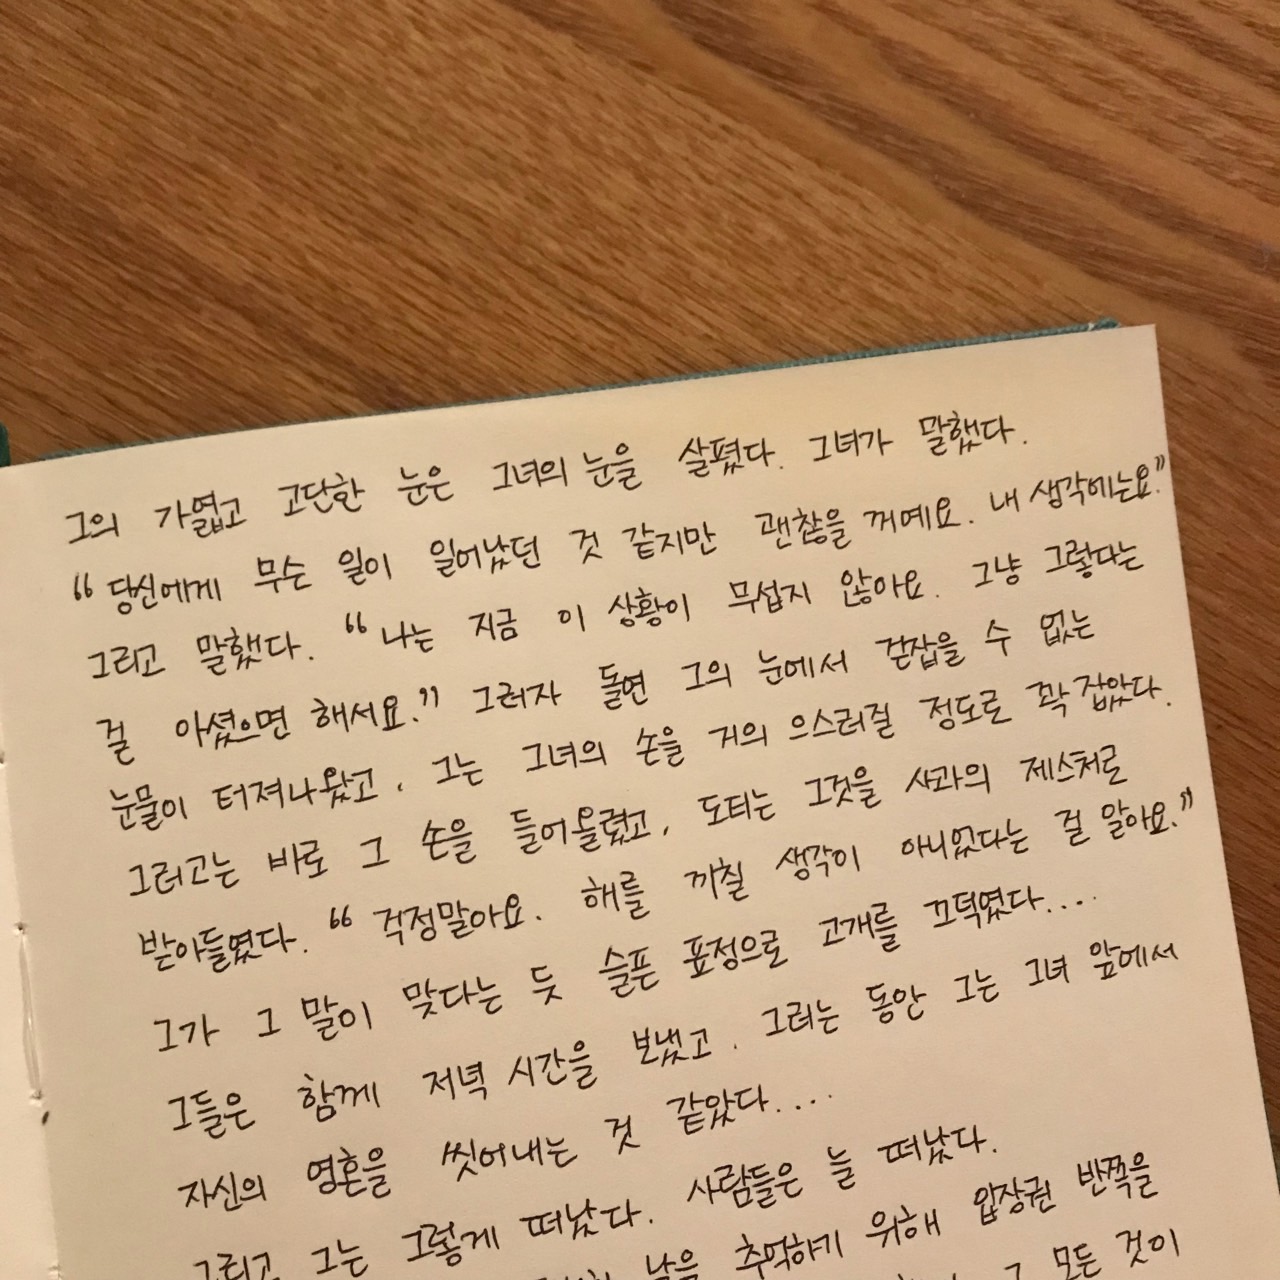 그의 가엾고 고단한 눈은 그녀의 눈을 살폈다. 그녀가 말했다.
“당신에게 무슨 일이 일어났던 것 같지만 괜찮을 꺼예요. 내 생각에는요.”
그리고 말했다. “나는 지금 이 상황이 무섭지 않아요. 그냥 그렇다는
걸 아셨으면 해서요.” 그러자 돌연 그의 눈에서 걷잡을 수 없는
눈물이 터져나왔고, 그는 그녀의 손을 거의 으스러질 정도로 꽉 잡았다.
그러고는 바로 그 손을 들어올렸고, 도티는 그것을 사과의 제스처로
받아들였다. “걱정말아요. 해를 끼칠 생각이 아니었다는 걸 알아요.”
그가 그 말이 맞다는 듯 슬픈 표정으로 고개를 끄덕였다....
그들은 함께 저녁 시간을 보냈고, 그러는 동안 그는 그녀 앞에서
자신의 영혼을 씻어내는 것 같았다....
그리고 그는 그렇게 떠났다. 사람들은 늘 떠났다.
날을 추억하기 위해 입장권 반쪽을
그 모든 것이